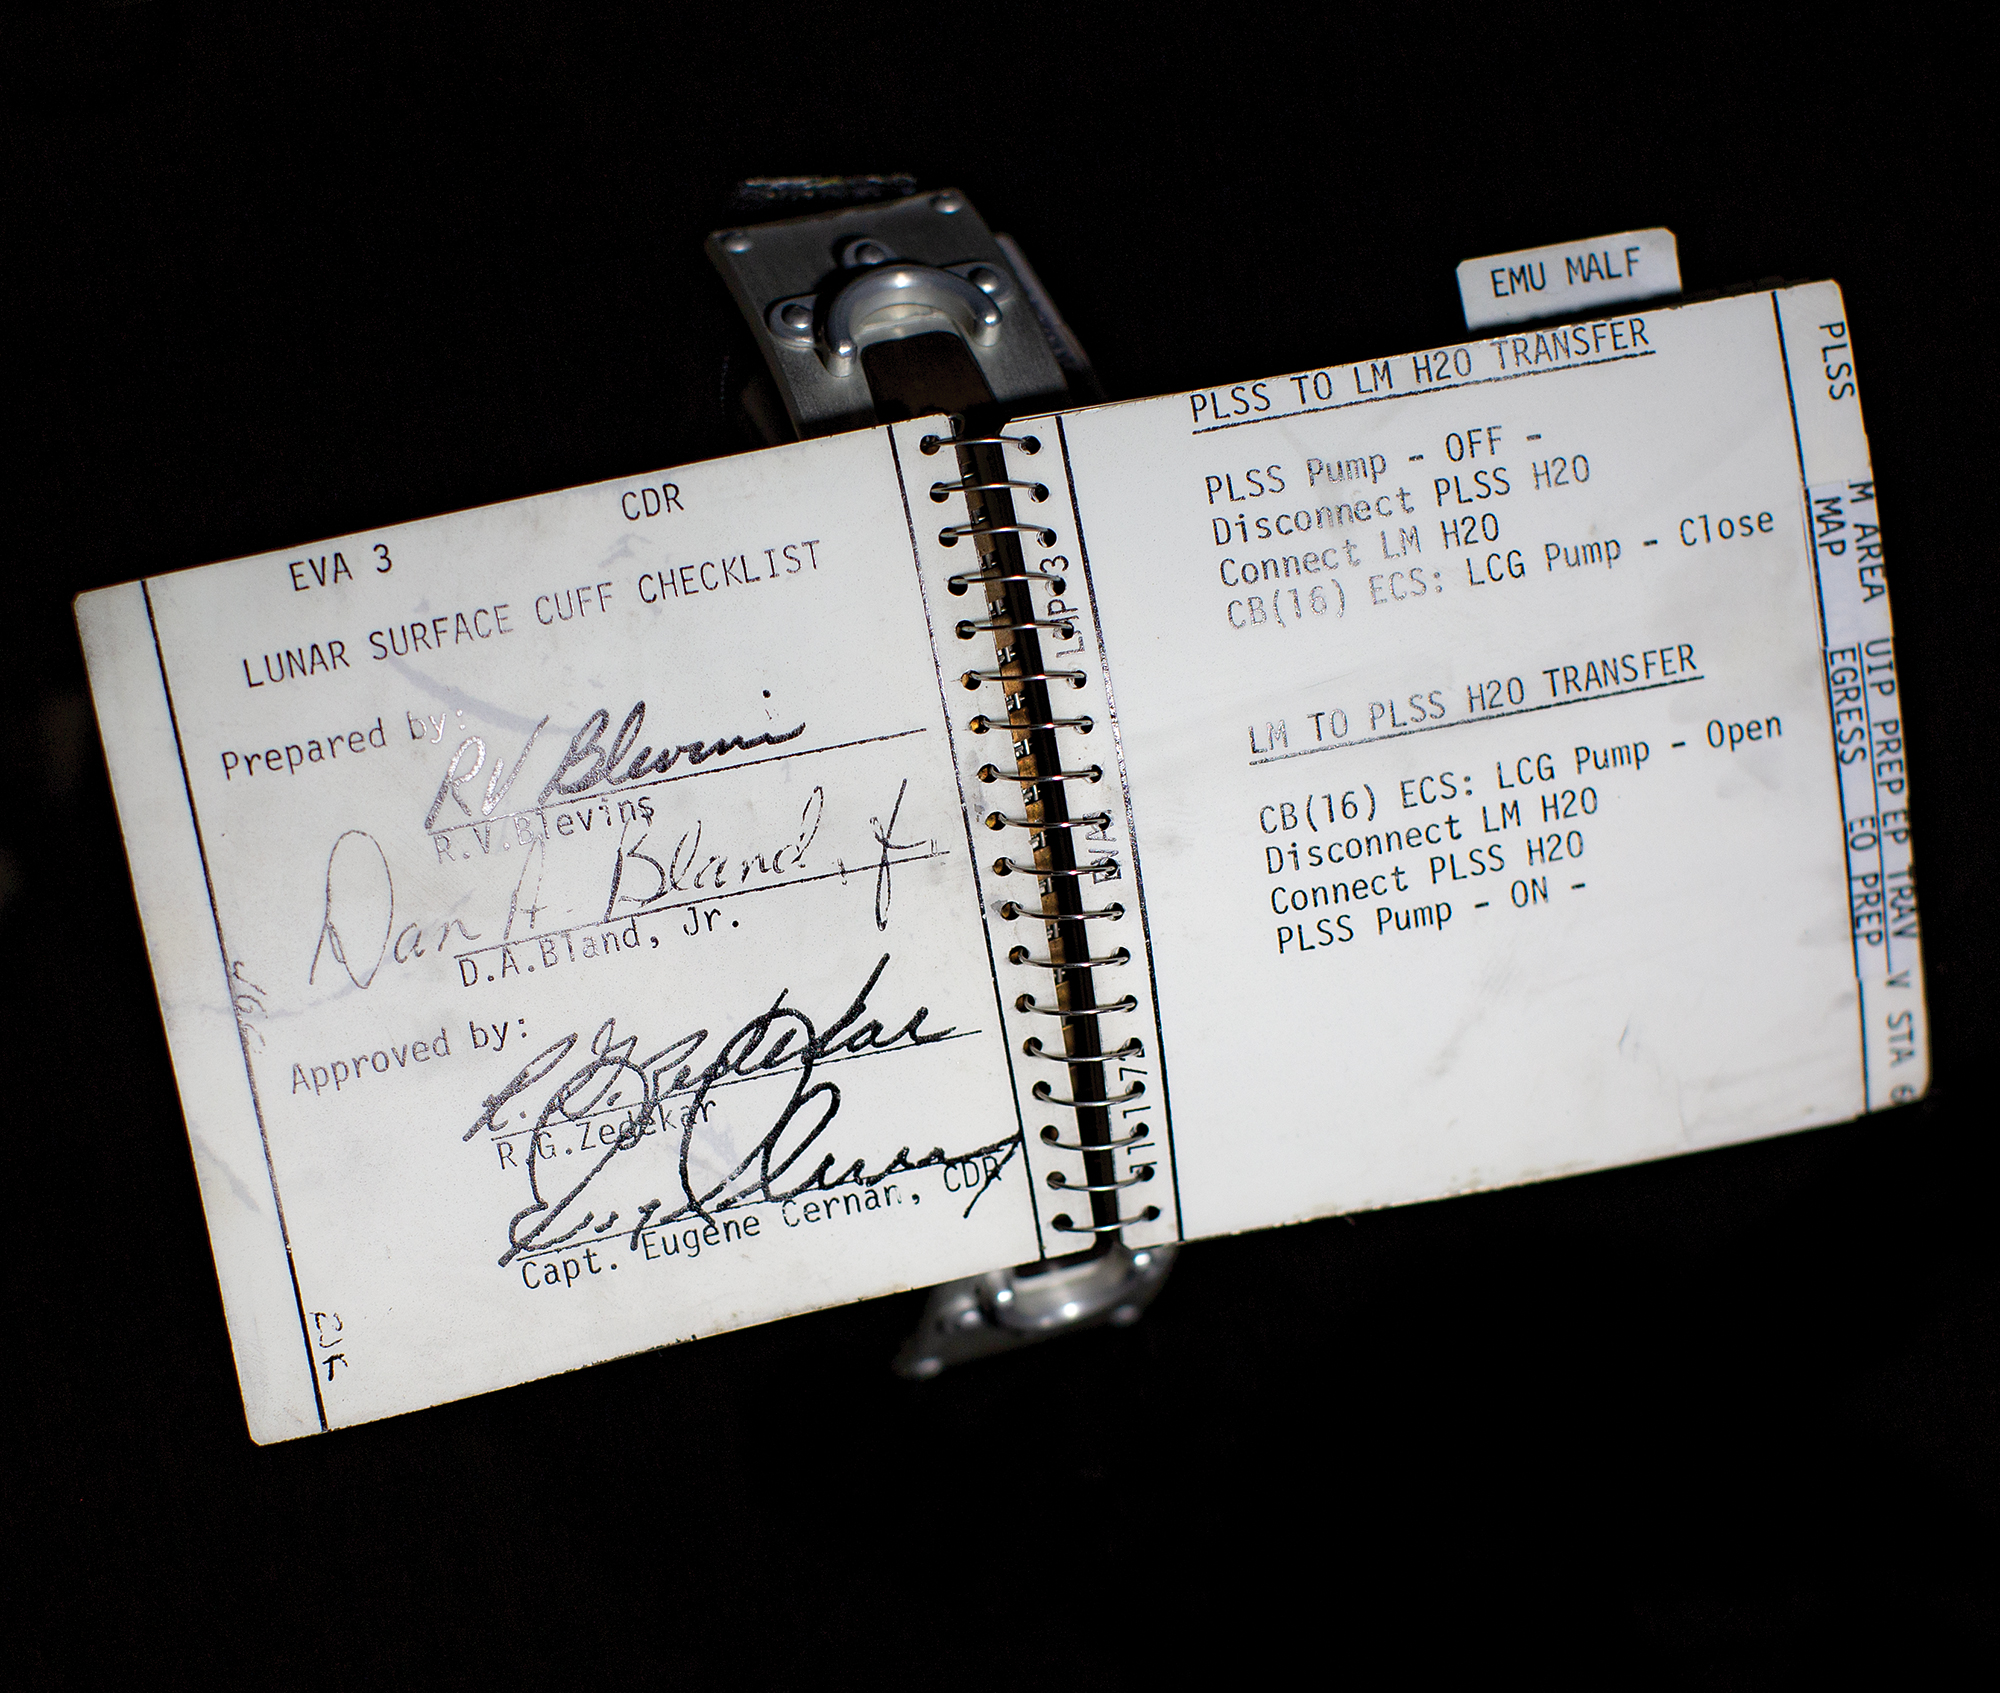 CDR
EVA 3
LUNAR SURFACE CUFF CHECKLIST
Prepared by:
RV Blevins
R.V.Blevins
Dan A. Bland, Jr.
D.A.Bland, Jr.
Approved by:
R. G. Zedekar
R.G.Zedekar
Eugene Cernan
Capt. Eugene Cernan, CDR
EMU MALF
PLSS TO LM H2O TRANSFER
PLSS Pump - OFF -
Disconnect PLSS H2O
Connect LM H2O
CB(16) ECS: LCG Pump - Close
LM TO PLSS H2O TRANSFER
CB(16) ECS: LCG Pump - Open
Disconnect LM H2O
Connect PLSS H2O
PLSS Pump - ON -
PLSS
M AREA
MAP
UIP PREP EP TRAV V STA 6
EGRESS EO PREP